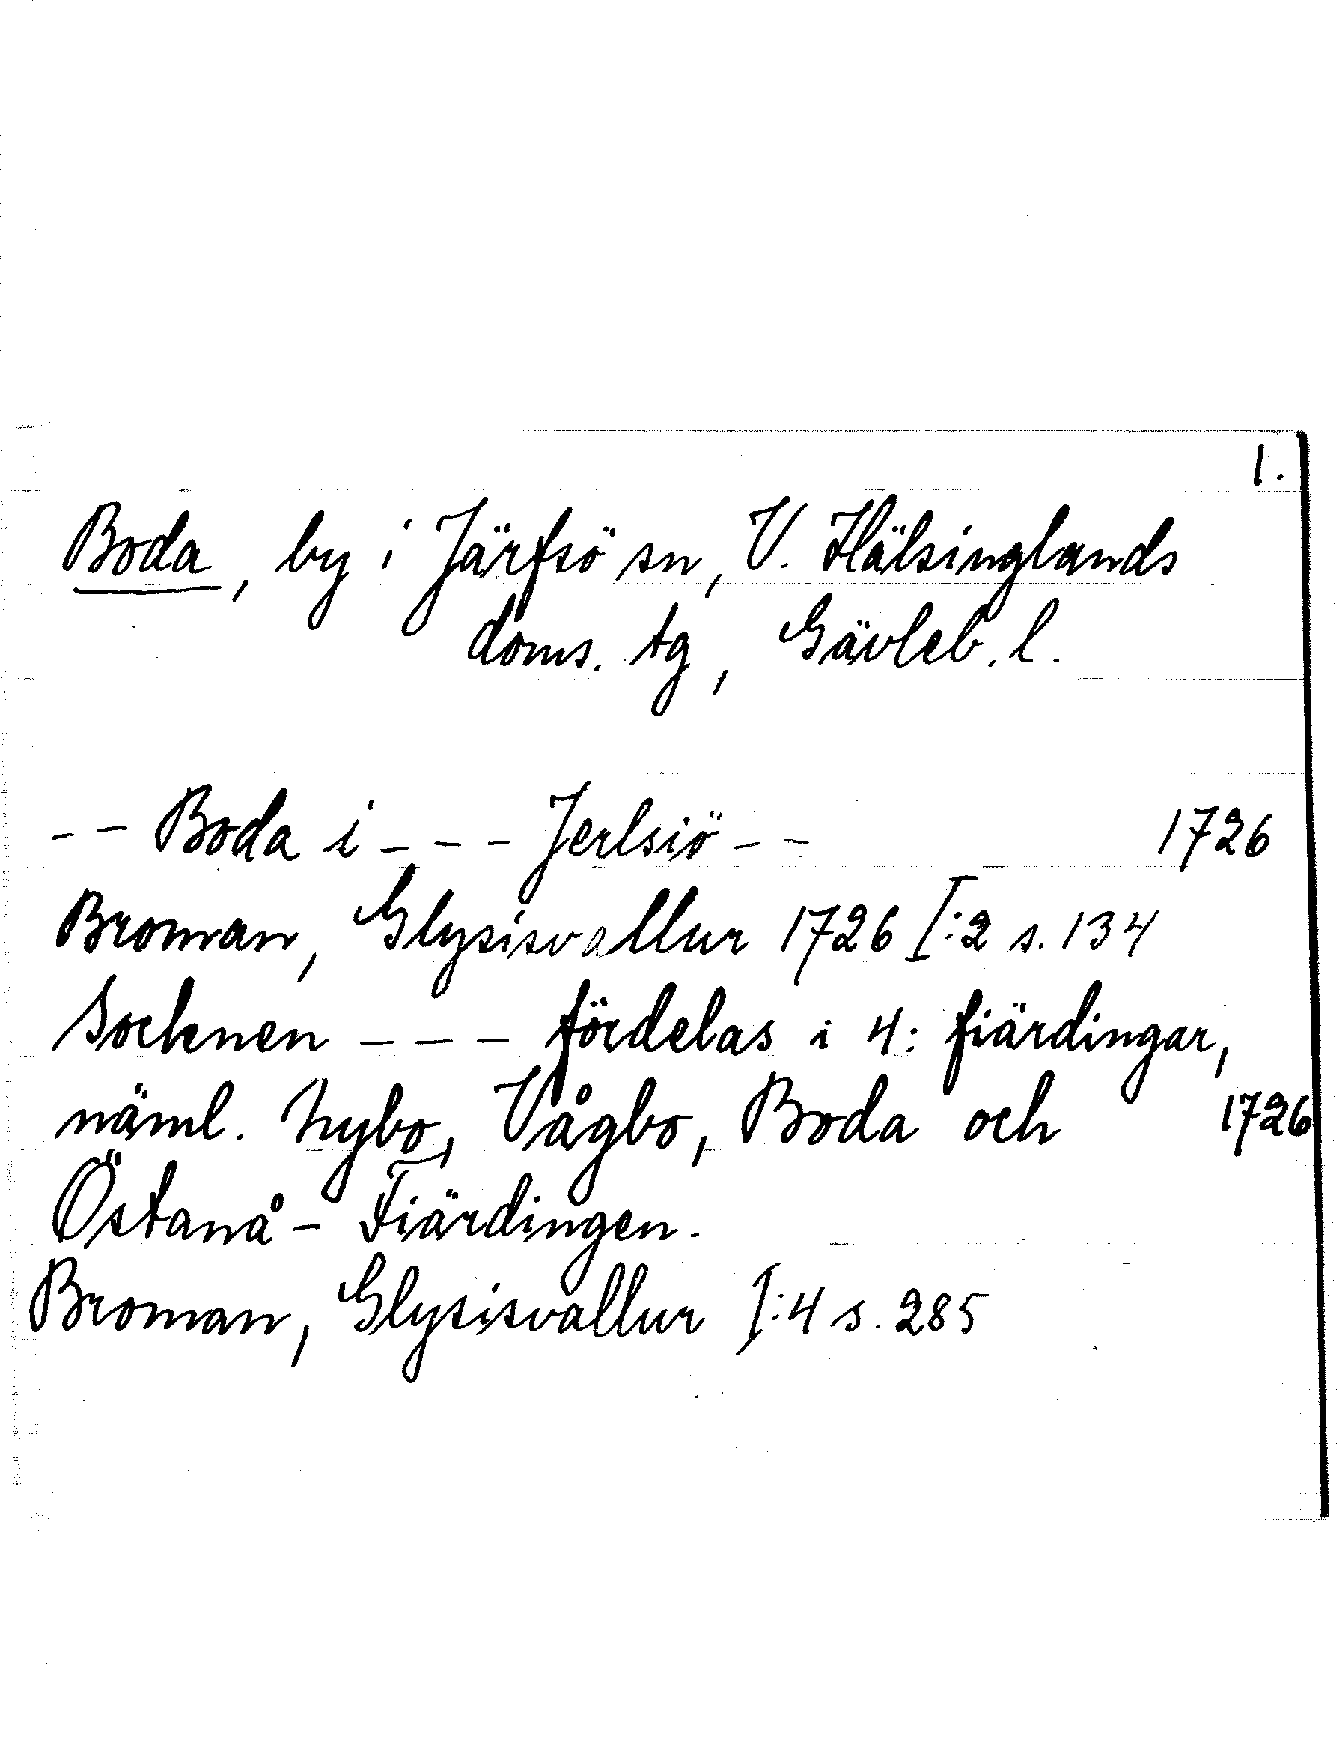 1.
Boda, by i Järfsö sn, V. Hälsinglands
doms. tg, Gävleb. l.
-- Boda i --- Jerlsiö -- 1726
Broman, Glysisvallur 1726 I:2 s. 134
Socknen --- fördelas i 4: fiärdingar,
näml. Nybo, Vågbo, Boda och 1726
Östanå- Fiärdingen.
Broman, Glysisvallur I:4 s. 285